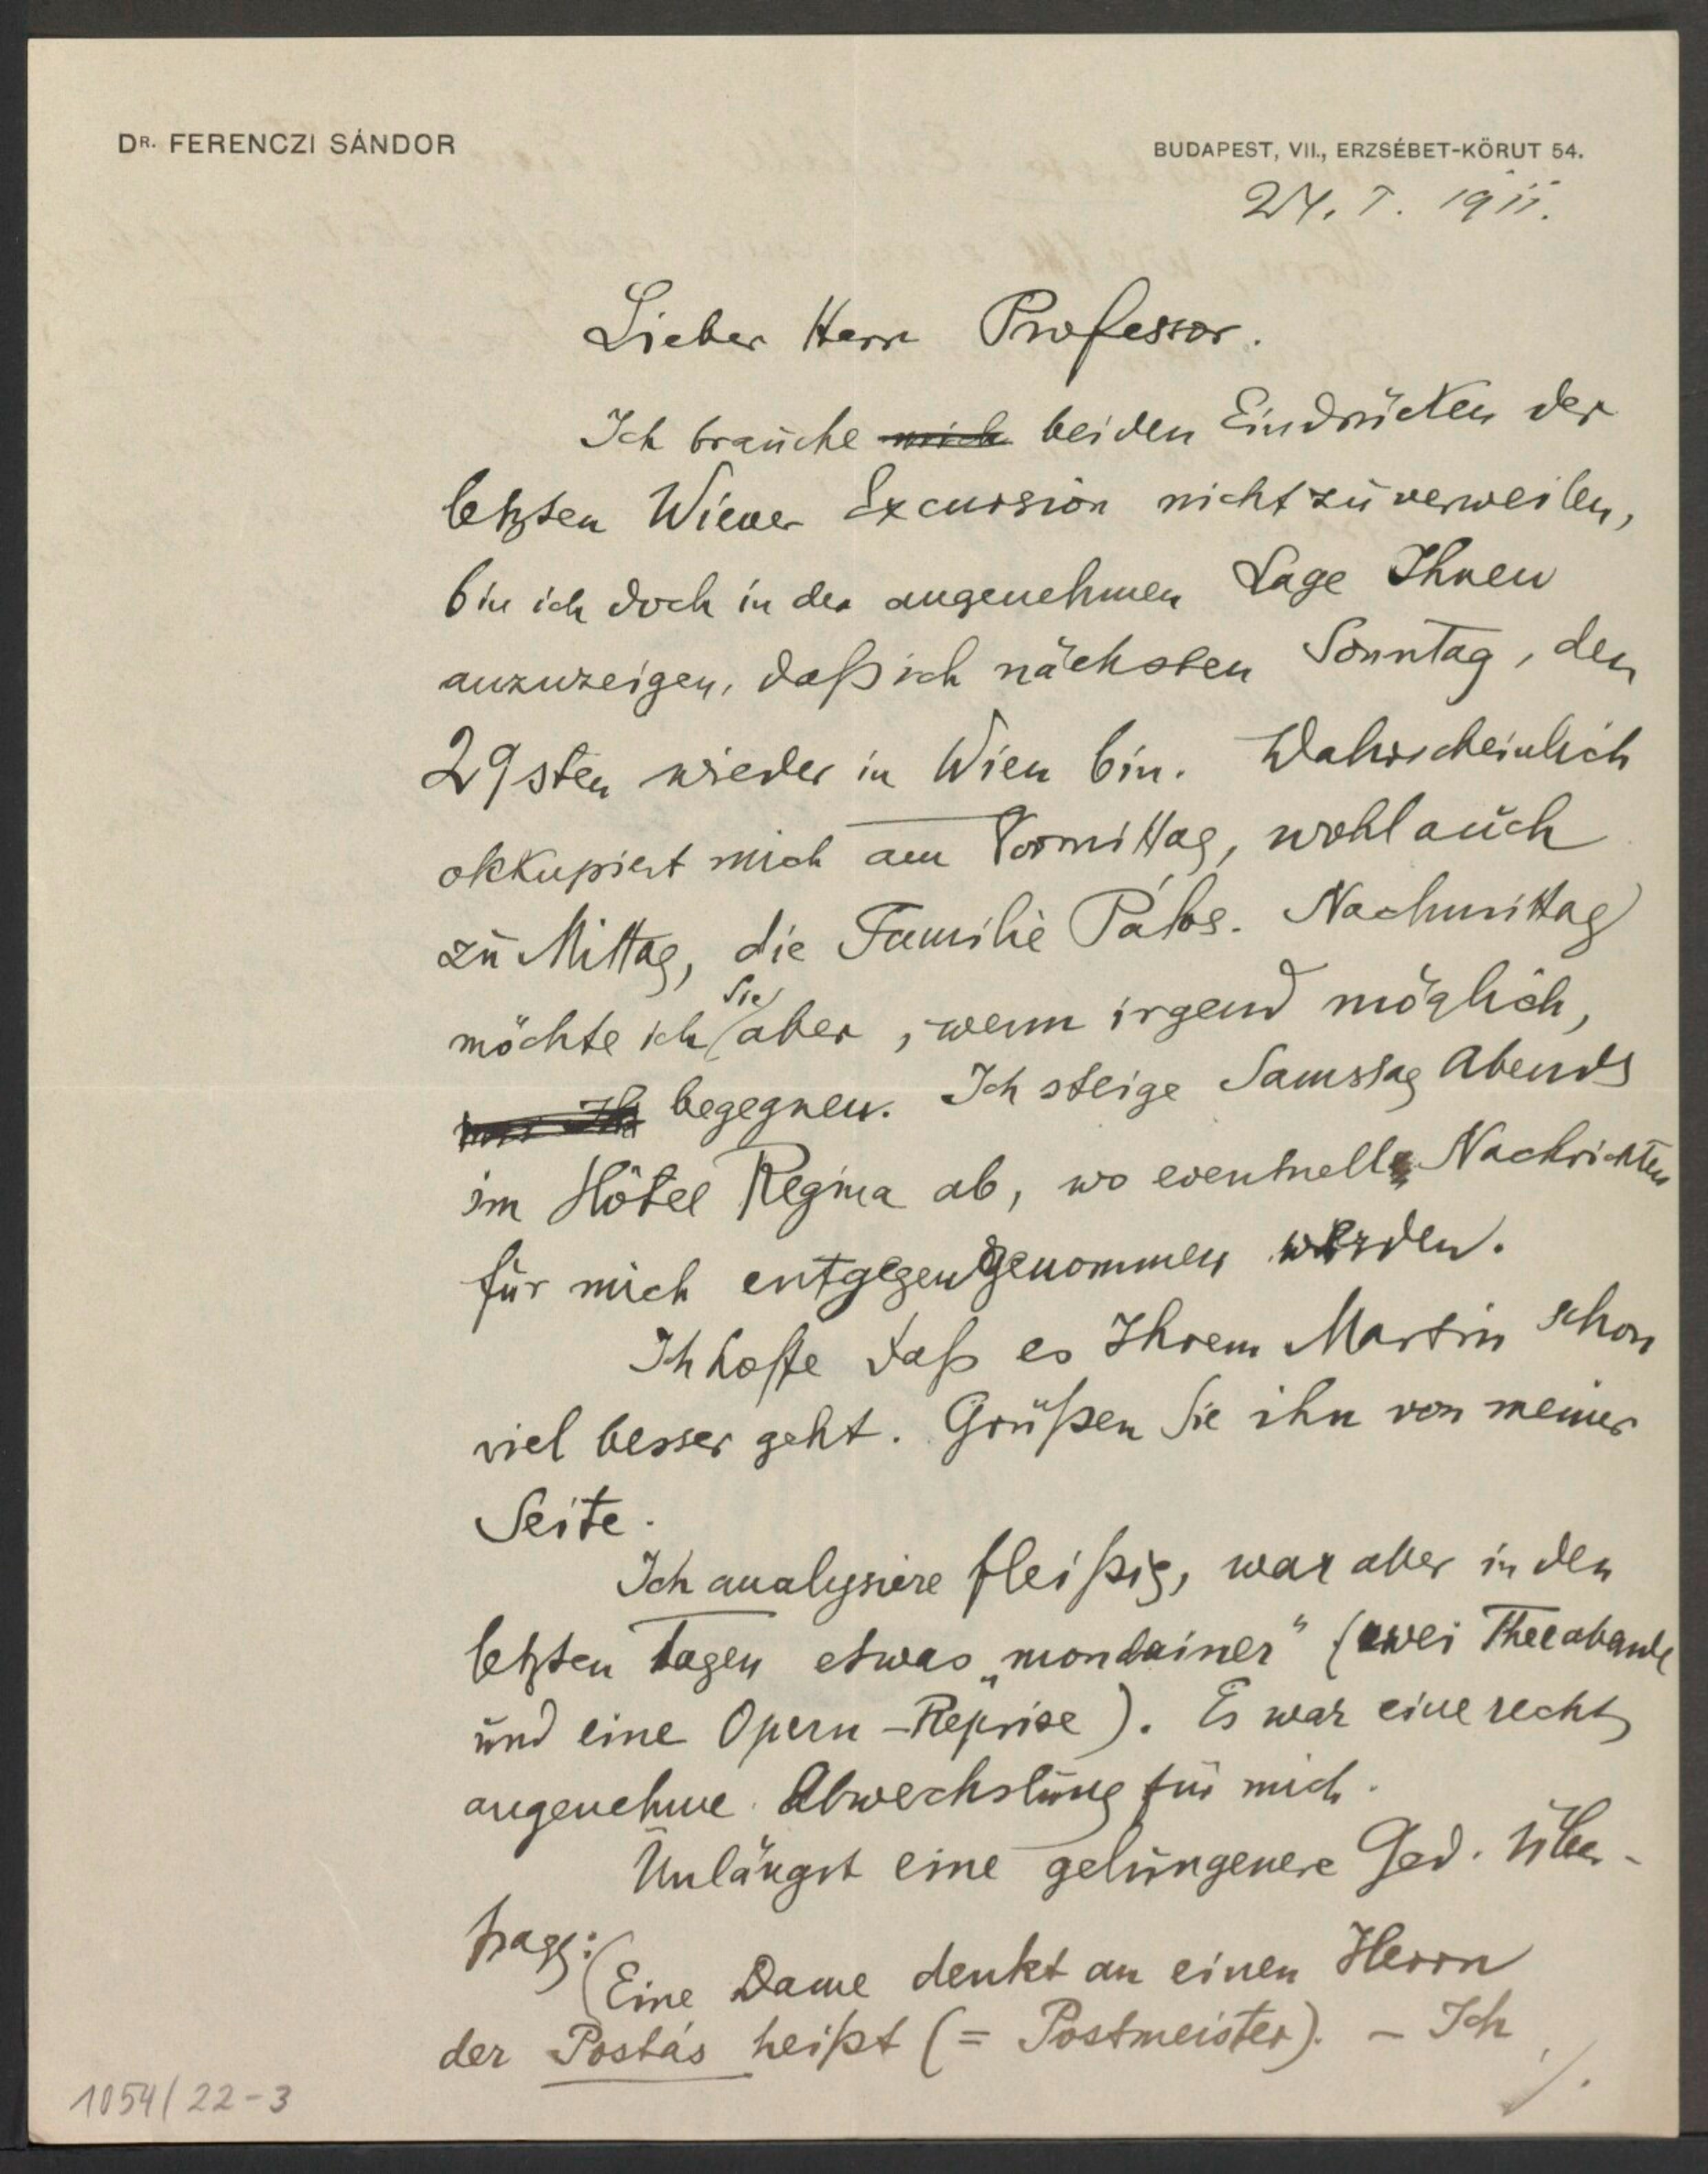 DR. FERENCZI SÁNDOR
BUDAPEST, VII., ERZSÉBET-KÖRUT 54.
24. I. 1911.
Lieber Herr Professor.
Ich brauche mich bei den Eindrücken der
letzten Wiener Excursion nicht zu verweilen,
bin ich doch in der angenehmen Lage Ihnen
anzuzeigen, daß ich nächsten Sonntag, den
29sten wieder in Wien bin. Wahrscheinlich
okkupiert mich am Vormittag, wohl auch
zu Mittag, die Familie Pálos. Nachmittag
möchte ich Sie aber, wenn irgend möglich,
begegnen. Ich steige Samstag Abends
im Hôtel Regina ab, wo eventuelle Nachrichten
für mich entgegengenommen werden.
Ich hoffe daß es Ihrem Martin schon
viel besser geht. Grüßen Sie ihn von meiner
Seite.
Ich analysiere fleißig, war aber in den
letzten Tagen etwas „mondainer“ (zwei Theeabende
und eine Opern-Reprise). Es war eine recht
angenehme Abwechslung für mich.
Unlängst eine gelungenere Ged. Über-
tragg: (Eine Dame denkt an einen Herrn
der Postás heißt (= Postmeister). – Ich
./.
1054/22-3